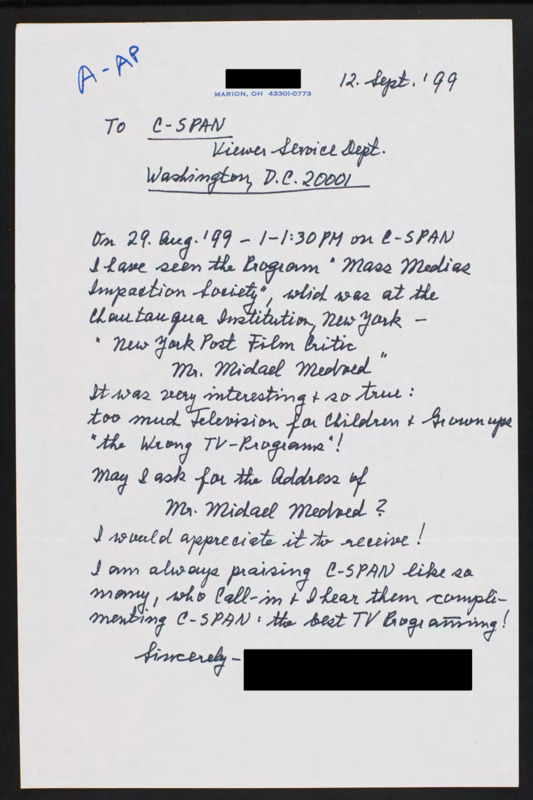 A-AP
MARION, OH 43301-0773
12. Sept. '99
To C-SPAN
Viewer Service Dept.
Washington, D.C. 20001
On 29. Aug. '99 - 1-1:30 PM on C-SPAN
I have seen the Program "Mass Medias
Impaction Society", which was at the
Chautauqua Institution, New York -
"New York Post Film Critic
Mr. Michael Medved"
It was very interesting + so true:
too much Television for Children + Grown ups
"the Wrong TV-Programs"!
May I ask for the Address of
Mr. Michael Medved?
I would appreciate it to receive!
I am always praising C-SPAN like so
many, who Call-in + I hear them compli-
menting C-SPAN: the best TV Programming!
Sincerely -